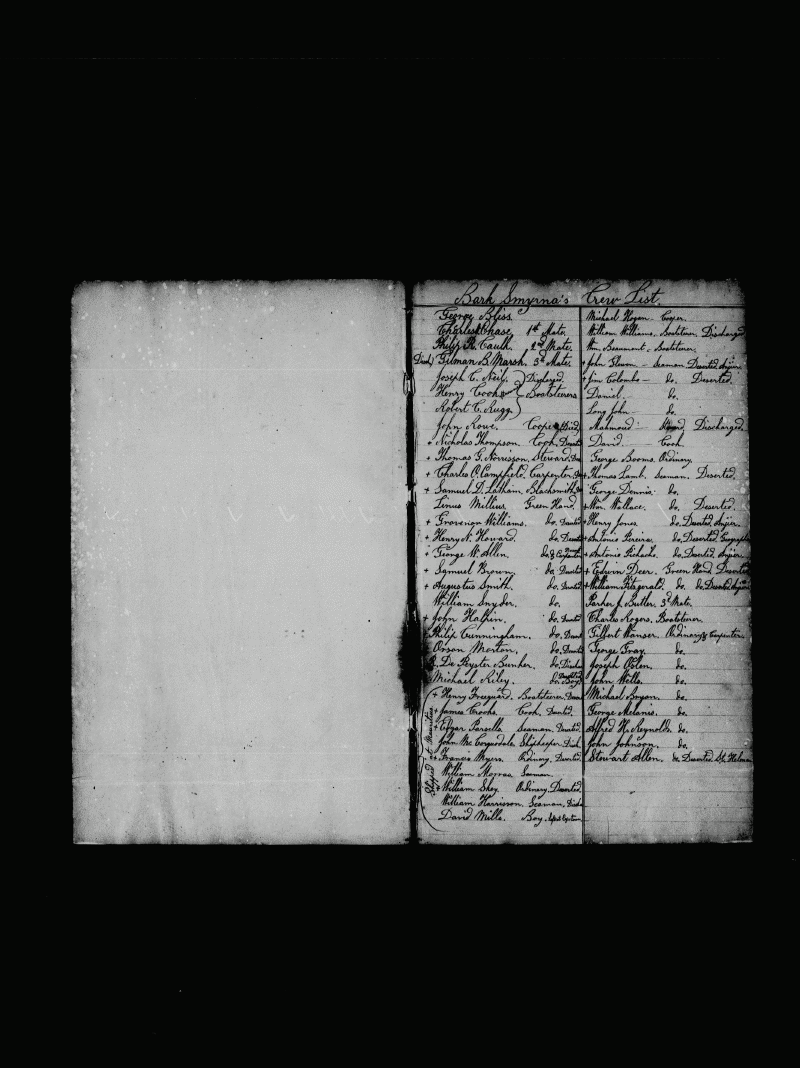 Bark Smyrna's Crew List.
George Bliss.
Charles Chase, 1st Mate.
Philip R. Caulk. 2nd Mate.
Died) Gilman B. Marsh. 3d Mate.
Joseph C. Neil. Displaced.
Henry Cook } Boatsteerers
Robert C. Rugg.
John Rowe. Cooper Died,
+ Nicholas Thompson. Cook,
+ Thomas G. Norrisson. Steward,
+ Charles O. Campfield. Carpenter,
+ Samuel D. Latham. Blacksmith,
Linus Millius, Green Hand.
+ Grosvenor Williams. do. Deserted
+ Henry N. Howard. do.
+ George W. Allen. do. & Carpenter
+ Samuel Brown. do. Deserted
+ Augustus Smith. do. Deserted
William Snyder. do.
+ John Halpin. do. Deserted
Philip Cunningham. do.
Orson Morton. do.
De Peyster Bunker. do.
Michael Riley. do. Boy
Shipped at Mauritius
+ Henry Boatsteerer.
+ James Crooks. Cook. Deserted.
+ Edgar Parsells. Seaman. Deserted.
John Shipkeeper.
+ Francis Myers. Ordinary. Deserted
William Seaman.
+ William Shey. Ordinary, Deserted
William Harrisson. Seaman.
David Mills. Boy.
Michael Hogan. Cooper.
William Williams. Boatsteerer. Discharged
Wm. Beaumont. Boatsteerer.
+ John Seaman Deserted Anjier.
+ Jim Colombo — do. Deserted.
Daniel. do.
Long John — do.
Mahmoud — Discharged
David — Cook
George Booms. Ordinary.
+ Thomas Lamb. Seaman. Deserted.
George Dennis. do.
+ Wm. Wallace. do. Deserted.
+ Henry Jones do. Deserted. Anjier.
+ Antonio Pereira. do. Deserted
+ Antonio do. Deserted Anjier
+ Edwin Deer. Green Hand. Deserted
+ William Fitzgerald. do. do. Deserted
Parker J. Butler. 3d Mate.
Charles Rogers. Boatsteerer.
Gilbert Wanser. Ordinary & Carpenter.
George Gray. do.
Joseph Oslen. do.
John Wells. do.
Michael Bryan. do.
George Melanis. do.
Alfred H. Reynolds. do.
John Johnson. do.
Stewart Allen. do. Deserted St. Helena